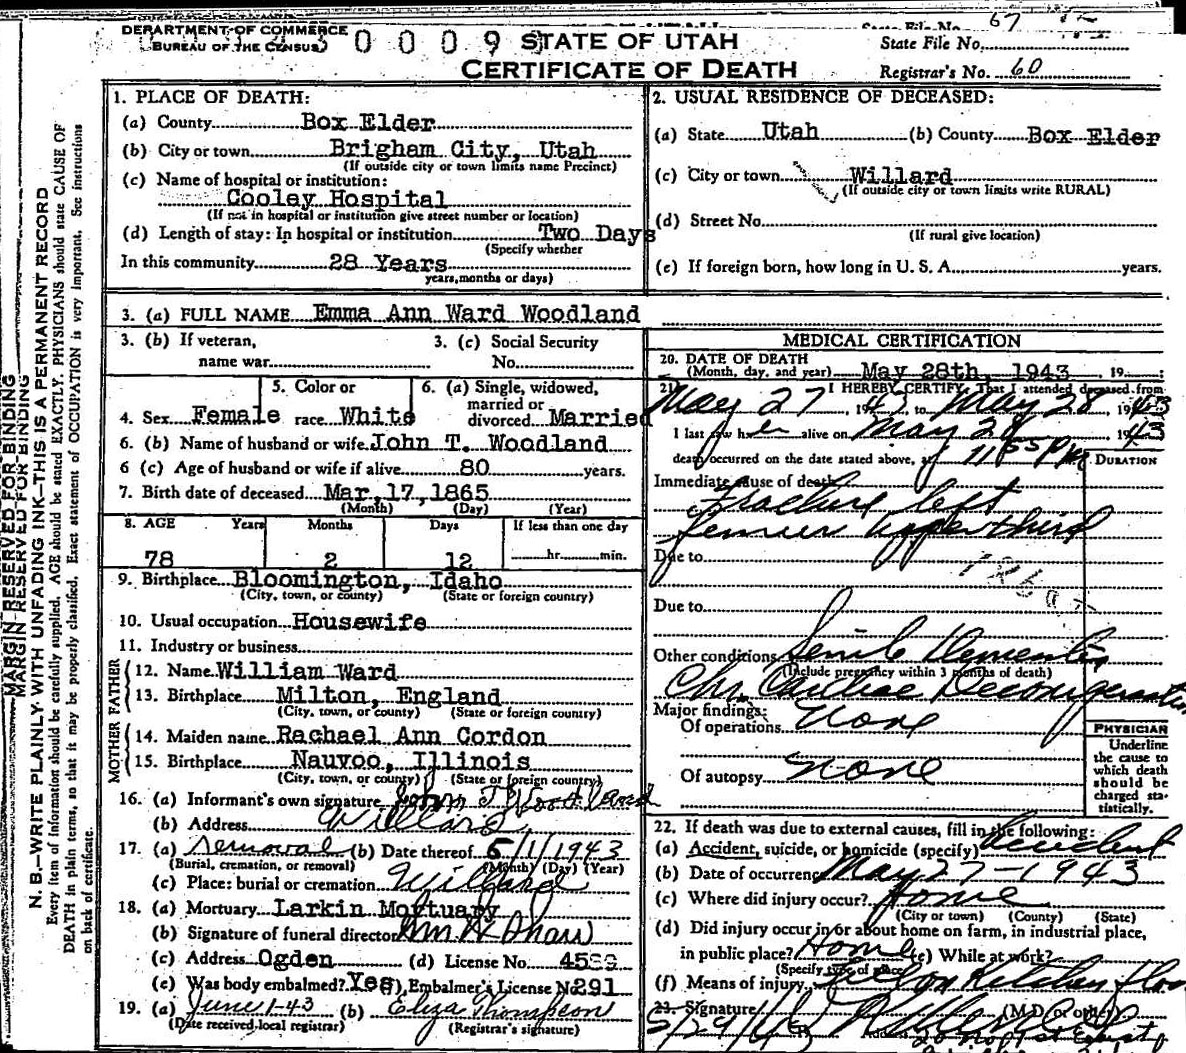 DEPARTMENT OF COMMERCE
BUREAU OF THE CENSUS
0 0 0 9
STATE OF UTAH
CERTIFICATE OF DEATH
State File No. 67
State File No.
Registrar's No. 60
MARGIN RESERVED FOR BINDING
MARGIN RESERVED FOR BINDING
N. B.—WRITE PLAINLY WITH UNFADING INK—THIS IS A PERMANENT RECORD
Every item of information should be carefully supplied. AGE should be stated EXACTLY. PHYSICIANS should state CAUSE OF
DEATH in plain terms, so that it may be properly classified. Exact statement of OCCUPATION is very important. See instructions
on back of certificate.
1. PLACE OF DEATH:
(a) County Box Elder
(b) City or town Brigham City, Utah
(If outside city or town limits name Precinct)
(c) Name of hospital or institution:
Cooley Hospital
(If not in hospital or institution give street number or location)
(d) Length of stay: In hospital or institution Two Days
(Specify whether
In this community 28 Years
years, months or days)
2. USUAL RESIDENCE OF DECEASED:
(a) State Utah (b) County Box Elder
(c) City or town Willard
(If outside city or town limits write RURAL)
(d) Street No.
(If rural give location)
(e) If foreign born, how long in U. S. A. years.
3. (a) FULL NAME Emma Ann Ward Woodland
3. (b) If veteran, name war
3. (c) Social Security No.
4. Sex Female
5. Color or race White
6. (a) Single, widowed, married or divorced Married
6. (b) Name of husband or wife John T. Woodland
6 (c) Age of husband or wife if alive 80 years.
7. Birth date of deceased Mar, 17, 1865
(Month) (Day) (Year)
8. AGE Years Months Days If less than one day
78 2 12 hr. min.
9. Birthplace Bloomington, Idaho
(City, town, or county) (State or foreign country)
10. Usual occupation Housewife
11. Industry or business
FATHER
12. Name William Ward
13. Birthplace Milton, England
(City, town, or county) (State or foreign country)
MOTHER
14. Maiden name Rachael Ann Cordon
15. Birthplace Nauvoo, Illinois
(City, town, or county) (State or foreign country)
16. (a) Informant's own signature John T Woodland
(b) Address Willard
17. (a) removal (b) Date thereof 6/1/1943
(Burial, cremation, or removal) (Month) (Day) (Year)
(c) Place: burial or cremation Willard
18. (a) Mortuary Larkin Mortuary
(b) Signature of funeral director Wm H Shaw
(c) Address Ogden (d) License No.
(e) Was body embalmed? Yes, Embalmer's License No 291
19. (a) June 1-43 (b) Eliza Thompson
(Date received local registrar) (Registrar's signature)
MEDICAL CERTIFICATION
20. DATE OF DEATH
(Month, day, and year) May 28th, 1943, 19
21. I HEREBY CERTIFY, That I attended deceased from
May 27, 1943, to May 28, 1943
I last saw her alive on May 28 1943
death occurred on the date stated above, at 11 55 P M
DURATION
Immediate cause of death
Fracture left
femur upper third
Due to
Due to
Other conditions Senile Dementia
(Include pregnancy within 3 months of death)
Chr Cardiac Decompensation
Major findings:
Of operations None
Of autopsy None
PHYSICIAN
Underline
the cause to
which death
should be
charged sta-
tistically.
22. If death was due to external causes, fill in the following:
(a) Accident, suicide, or homicide (specify) Accident
(b) Date of occurrence May 27-1943
(c) Where did injury occur? Home
(City or town) (County) (State)
(d) Did injury occur in or about home on farm, in industrial place,
in public place? Home (e) While at work?
(Specify type of place)
(f) Means of injury Kitchen floor
23. Signature (M D or other)
5/29/43